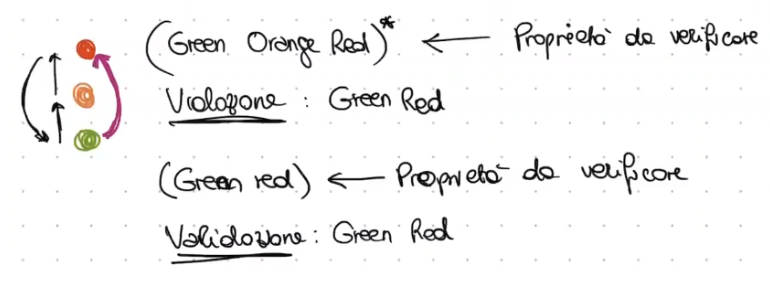 (Green Orange Red)* ← Proprietà da verificare
Violazione : Green Red
(Green red) ← Proprietà da verificare
Validazione : Green Red